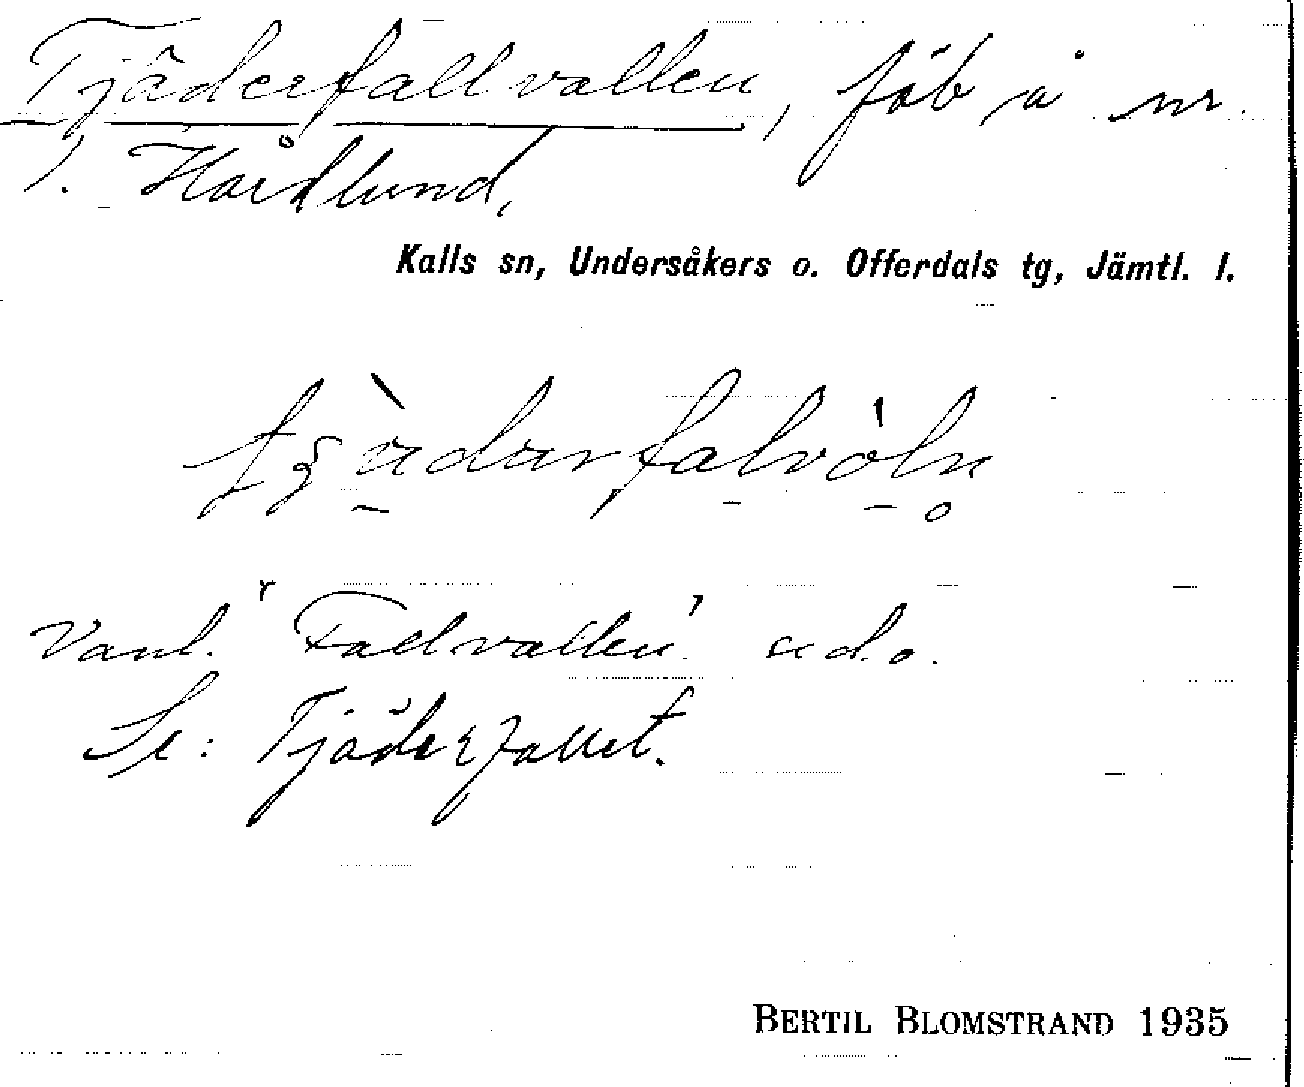 Tjäderfallvallen, fäb å nr
1. Hårdlund,
Kalls sn, Undersåkers o. Offerdals tg, Jämtl. l.
Vanl. "Fallvallen" o.
Se: Tjäderfallet.
BERTIL BLOMSTRAND 1935